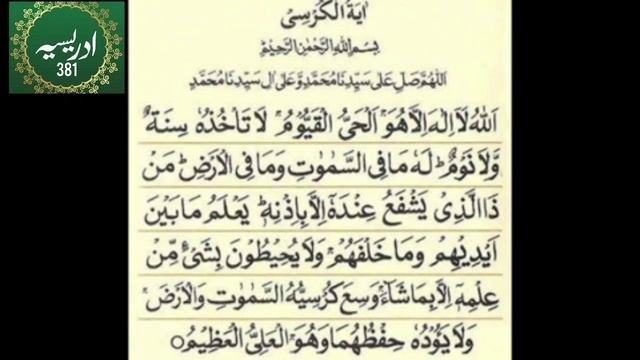 ادریسیہ
381
اٰیَةُ الْکُرْسِیْ
بِسْمِ اللهِ الرَّحْمٰنِ الرَّحِیْمِ
اَللّٰهُمَّ صَلِّ عَلٰی سَیِّدِنَا مُحَمَّدٍ وَّعَلٰی اٰلِ سَیِّدِنَا مُحَمَّدٍ
اَللّٰهُ لَاۤ اِلٰهَ اِلَّا هُوَۚ اَلْحَیُّ الْقَیُّوْمُ ۚ لَا تَاْخُذُهٗ سِنَةٌ
وَّلَا نَوْمٌ ؕ لَهٗ مَا فِی السَّمٰوٰتِ وَمَا فِی الْاَرْضِ ؕ مَنْ
ذَا الَّذِیْ یَشْفَعُ عِنْدَهٗۤ اِلَّا بِاِذْنِهٖ ؕ یَعْلَمُ مَا بَیْنَ
اَیْدِیْهِمْ وَمَا خَلْفَهُمْ ۚ وَلَا یُحِیْطُوْنَ بِشَیْءٍ مِّنْ
عِلْمِهٖۤ اِلَّا بِمَا شَآءَ ۚ وَسِعَ کُرْسِیُّهُ السَّمٰوٰتِ وَالْاَرْضَ ۚ
وَلَا یَـُٔوْدُهٗ حِفْظُهُمَا وَهُوَ الْعَلِیُّ الْعَظِیْمُ ○